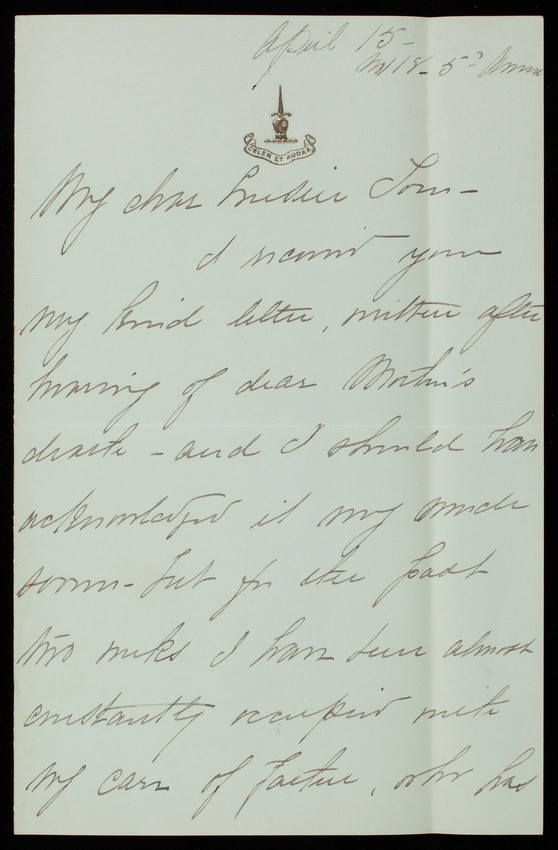 April 15-
No 18 - 5th Avenue
CELER ET AUDAX
My dear Cousin Tom -
I received your
very kind letter, written after
hearing of dear Mother's
death - and I should have
acknowledged it very much
sooner - but for the past
two weeks I have been almost
constantly occupied with
my care of Father, who has